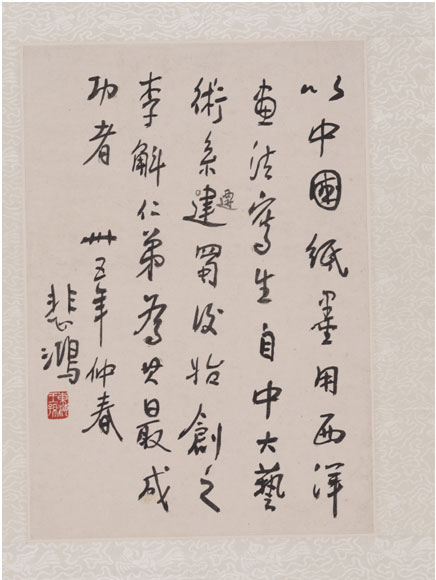 以中國紙墨用西洋
畫法寫生自中大藝
術系建遷蜀後始創之
李斛仁弟為其最成
功者 卅五年仲春
悲鴻